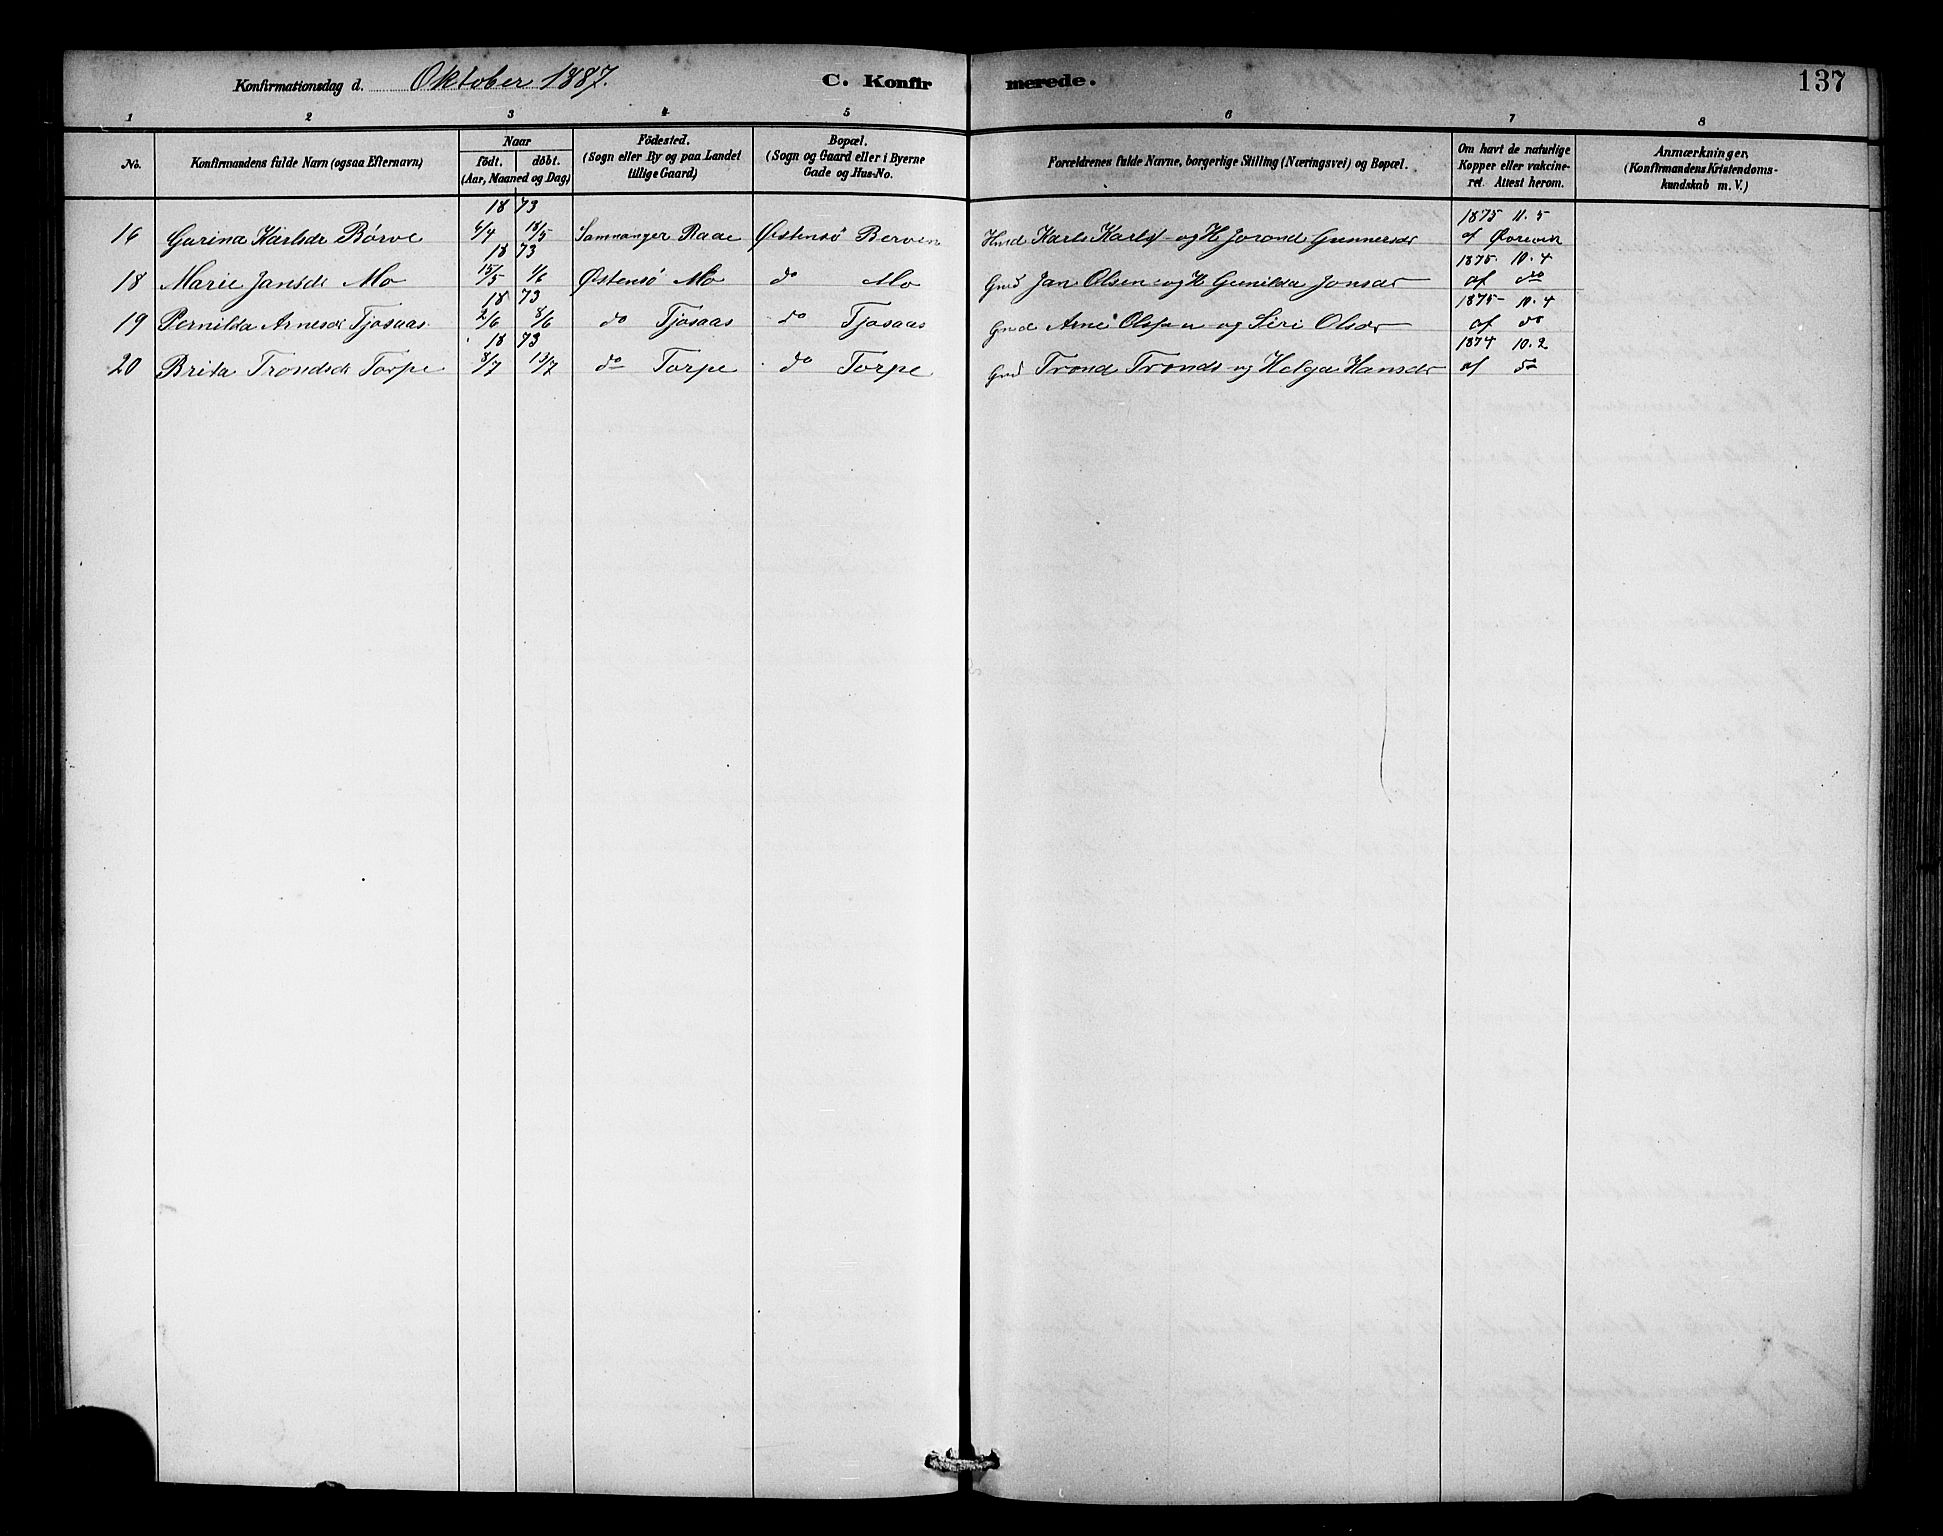 Konfirmationsdag d. Oktober 1887. C. Konfir merede. 137
1 2 3 4 5 6 7 8
No. Konfirmandens fulde Navn (ogsaa Efternavn) Naar födt. döbt. (Aar, Maaned og Dag) Födested. (Sogn eller By og paa Landet tillige Gaard) Bopæl. (Sogn og Gaard eller i Byerne Gade og Hus-No. Forældrenes fulde Navne, borgerlige Stilling (Næringsvei) og Bopæl. Om havt de naturlige Kopper eller vakcineret. Attest herom. Anmærkninger, (Konfirmandens Kristendomskundskab m. V.)
18 73 1875 11. 5
16 Gurina Karlsdr Børve 6/4 18/5 Samnanger Raae Østensö Berven Hmd Karl Karls og H Jorond Gunnersdr af Øvrevik
18 73 1875. 10. 4
18 Marie Jansdr Mo 15/5 1/6 Østensö Mo do Mo Gmd Jan Olsen og H Gunilda Jonsdr af do
18 73 1875- 10. 4
19 Pernilda Arnesdr Tjosaas 2/6 8/6 do Tjosaas do Tjosaas Gmd Arne Olsen og Siri Olsdr af do
18 73 1874 10. 2
20 Brita Trondsdr Torpe 8/7 13/7 do Torpe do Torpe Gmd Trond Tronds og Helga Hansdr af do